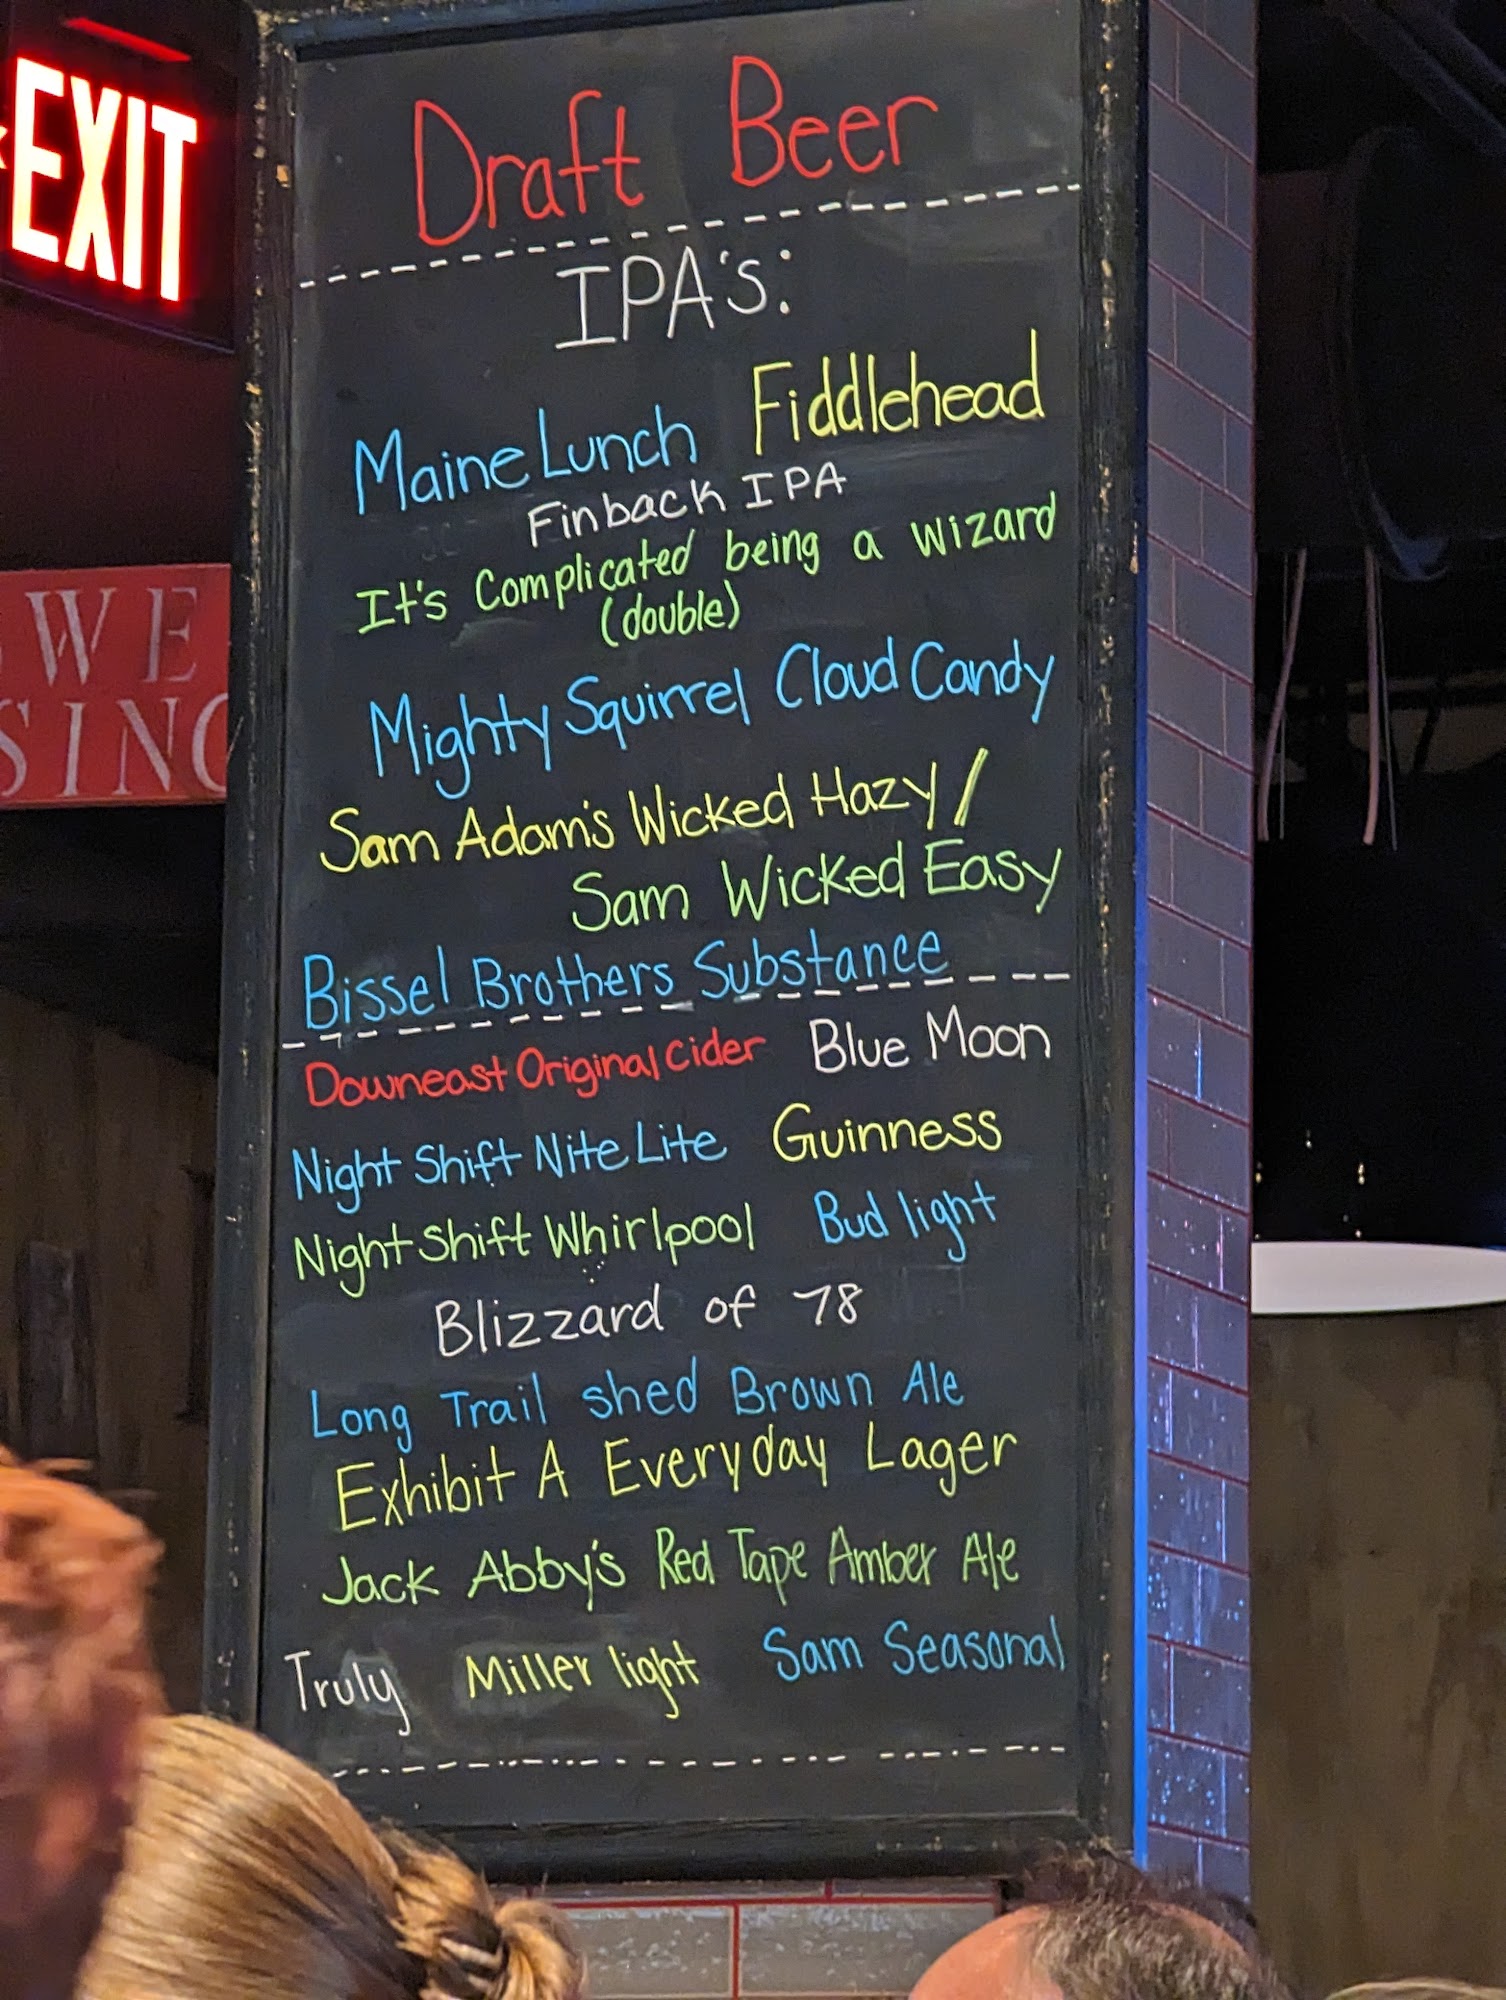 EXIT
WE
SING
Draft Beer
IPA's:
Maine Lunch Fiddlehead
Finback IPA
It's Complicated being a wizard
(double)
Mighty Squirrel Cloud Candy
Sam Adam's Wicked Hazy /
Sam Wicked Easy
Bissel Brothers Substance
Downeast Original Cider Blue Moon
Night Shift Nite Lite Guinness
Night Shift Whirlpool Bud light
Blizzard of 78
Long Trail shed Brown Ale
Exhibit A Everyday Lager
Jack Abby's Red Tape Amber Ale
Truly Miller light Sam Seasonal